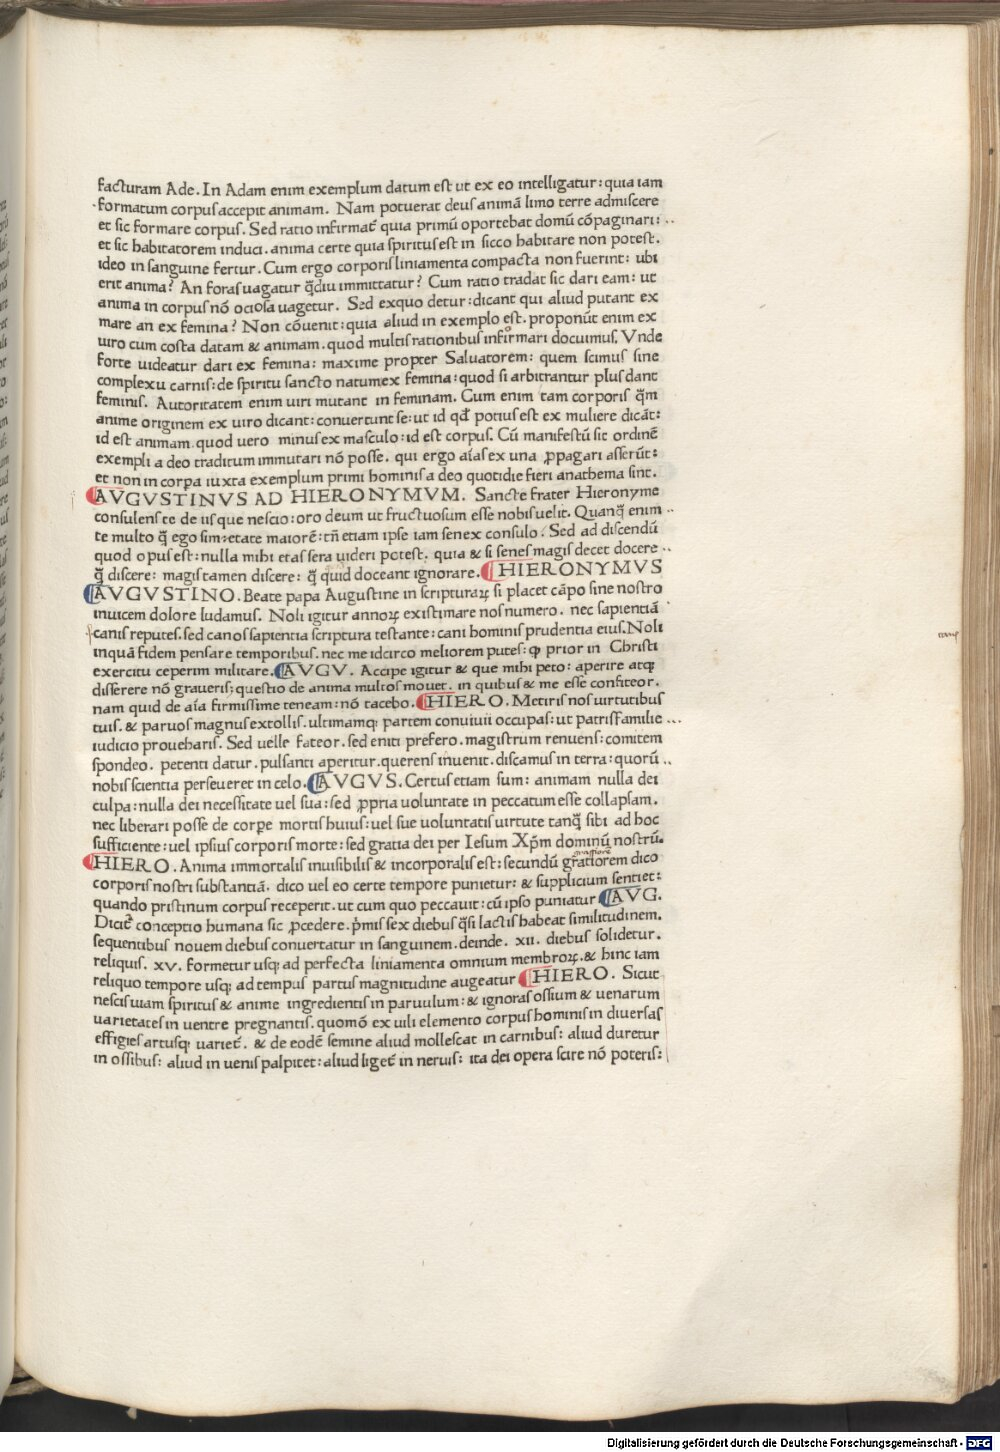 facturam Ade. In Adam enim exemplum datum est ut ex eo intelligatur: quia iam
formatum corpus accepit animam. Nam potuerat deus animā limo terre admiscere
et sic formare corpus. Sed ratio infirmat̄ quia primū oportebat domū cōpaginari:
et sic habitatorem induci. anima certe quia spiritus est in sicco habitare non potest.
ideo in sanguine fertur. Cum ergo corporis liniamenta compacta non fuerint: ubi
erit anima? An foras uagatur q̄diu immittatur? Cum ratio tradat sic dari eam: ut
anima in corpus nō ociosa uagetur. Sed exquo detur: dicant qui aliud putant ex
mare an ex femina? Non cōuenit: quia aliud in exemplo est. proponūt enim ex
uiro cum costa datam & animam. quod multis rationibus infirmari docuimus. Vnde
forte uideatur dari ex femina: maxime propter Saluatorem: quem scimus sine
complexu carnis: de spiritu sancto natum ex femina: quod si arbitrantur plus dant
feminis. Autoritatem enim uiri mutant in feminam. Cum enim tam corporis q̄m
anime originem ex uiro dicant: conuertunt se: ut id qd̄ potius est ex muliere dicāt:
id est animam. quod uero minus ex masculo: id est corpus. Cū manifestū sit ordinē
exempli a deo traditum immutari nō posse. qui ergo aīas ex una ꝓpagari asserūt:
et non in corpa iuxta exemplum primi hominis a deo quotidie fieri anathema sint.
AVGVSTINVS AD HIERONYMVM. Sancte frater Hieronyme
consulens te de iis que nescio: oro deum ut fructuosum esse nobis uelit. Quanq̄ enim
te multo q̄ ego sim: etate maiorē: tn̄ etiam ipse iam senex consulo. Sed ad discendū
quod opus est: nulla mihi etas sera uideri potest. quia & si senes magis decet docere
q̄ discere: magis tamen discere: q̄ quid doceant ignorare. HIERONYMVS
AVGVSTINO. Beate papa Augustine in scripturaꝝ si placet cāpo sine nostro
inuicem dolore ludamus. Noli igitur annoꝝ existimare nos numero. nec sapientiā
canis reputes. sed canos sapientia scriptura testante: cani hominis prudentia eius. Noli
inquā fidem pensare temporibus. nec me idcirco meliorem putes: ꝙ prior in Christi
exercitu ceperim militare. AVGV. Accipe igitur & que mihi peto: aperire atqꝫ
disserere nō graueris; questio de anima multos mouet. in quibus & me esse confiteor.
nam quid de aīa firmissime teneam: nō tacebo. HIERO. Metiris nos uirtutibus
tuis. & paruos magnus extollis. ultimamqꝫ partem conuiuii occupas: ut patrisfamilie
iudicio proueharis. Sed uelle fateor. sed eniti prefero. magistrum renuens: comitem
spondeo. petenti datur. pulsanti aperitur. querens inuenit. discamus in terra: quorū
nobis scientia perseueret in celo. AVGVS. Certus etiam sum: animam nulla dei
culpa: nulla dei necessitate uel sua: sed ꝓpria uoluntate in peccatum esse collapsam.
nec liberari posse de corpe mortis huius: uel sue uoluntatis uirtute tanq̄ sibi ad hoc
sufficiente: uel ipsius corporis morte: sed gratia dei per Iesum Xp̄m dominū nostrū.
HIERO. Anima immortalis inuisibilis & incorporalis est: secundū gratiorem dico
corporis nostri substantiā. dico uel eo certe tempore punietur: & supplicium sentiet:
quando pristinum corpus receperit. ut cum quo peccauit: cū ipso puniatur AVG.
Dicit̄ conceptio humana sic ꝓcedere. p̄mis sex diebus q̄si lactis habeat similitudinem.
sequentibus nouem diebus conuertatur in sanguinem. deinde. xii. diebus solidetur.
reliquis. xv. formetur usqꝫ ad perfecta liniamenta omnium membroꝝ. & hinc iam
reliquo tempore usqꝫ ad tempus partus magnitudine augeatur HIERO. Sicut
nescis uiam spiritus & anime ingredientis in paruulum: & ignoras ossium & uenarum
uarietates in uentre pregnantis. quomō ex uili elemento corpus hominis in diuersas
effigies artusqꝫ uariet̄. & de eodē semine aliud mollescat in carnibus: aliud duretur
in ossibus: aliud in uenis palpitet: aliud liget̄ in neruis: ita dei opera scire nō poteris:
Digitalisierung gefördert durch die Deutsche Forschungsgemeinschaft - DFG